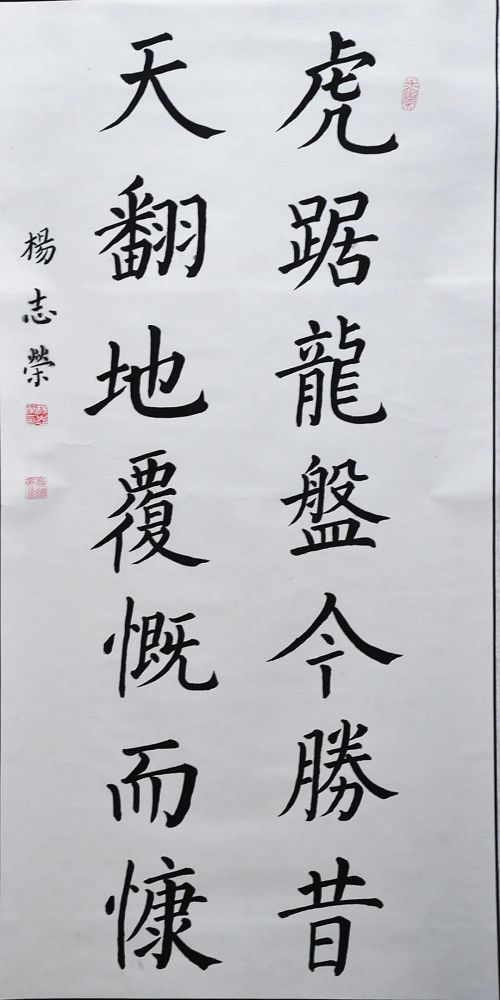 虎踞龍盤今勝昔
天翻地覆慨而慷
楊志榮